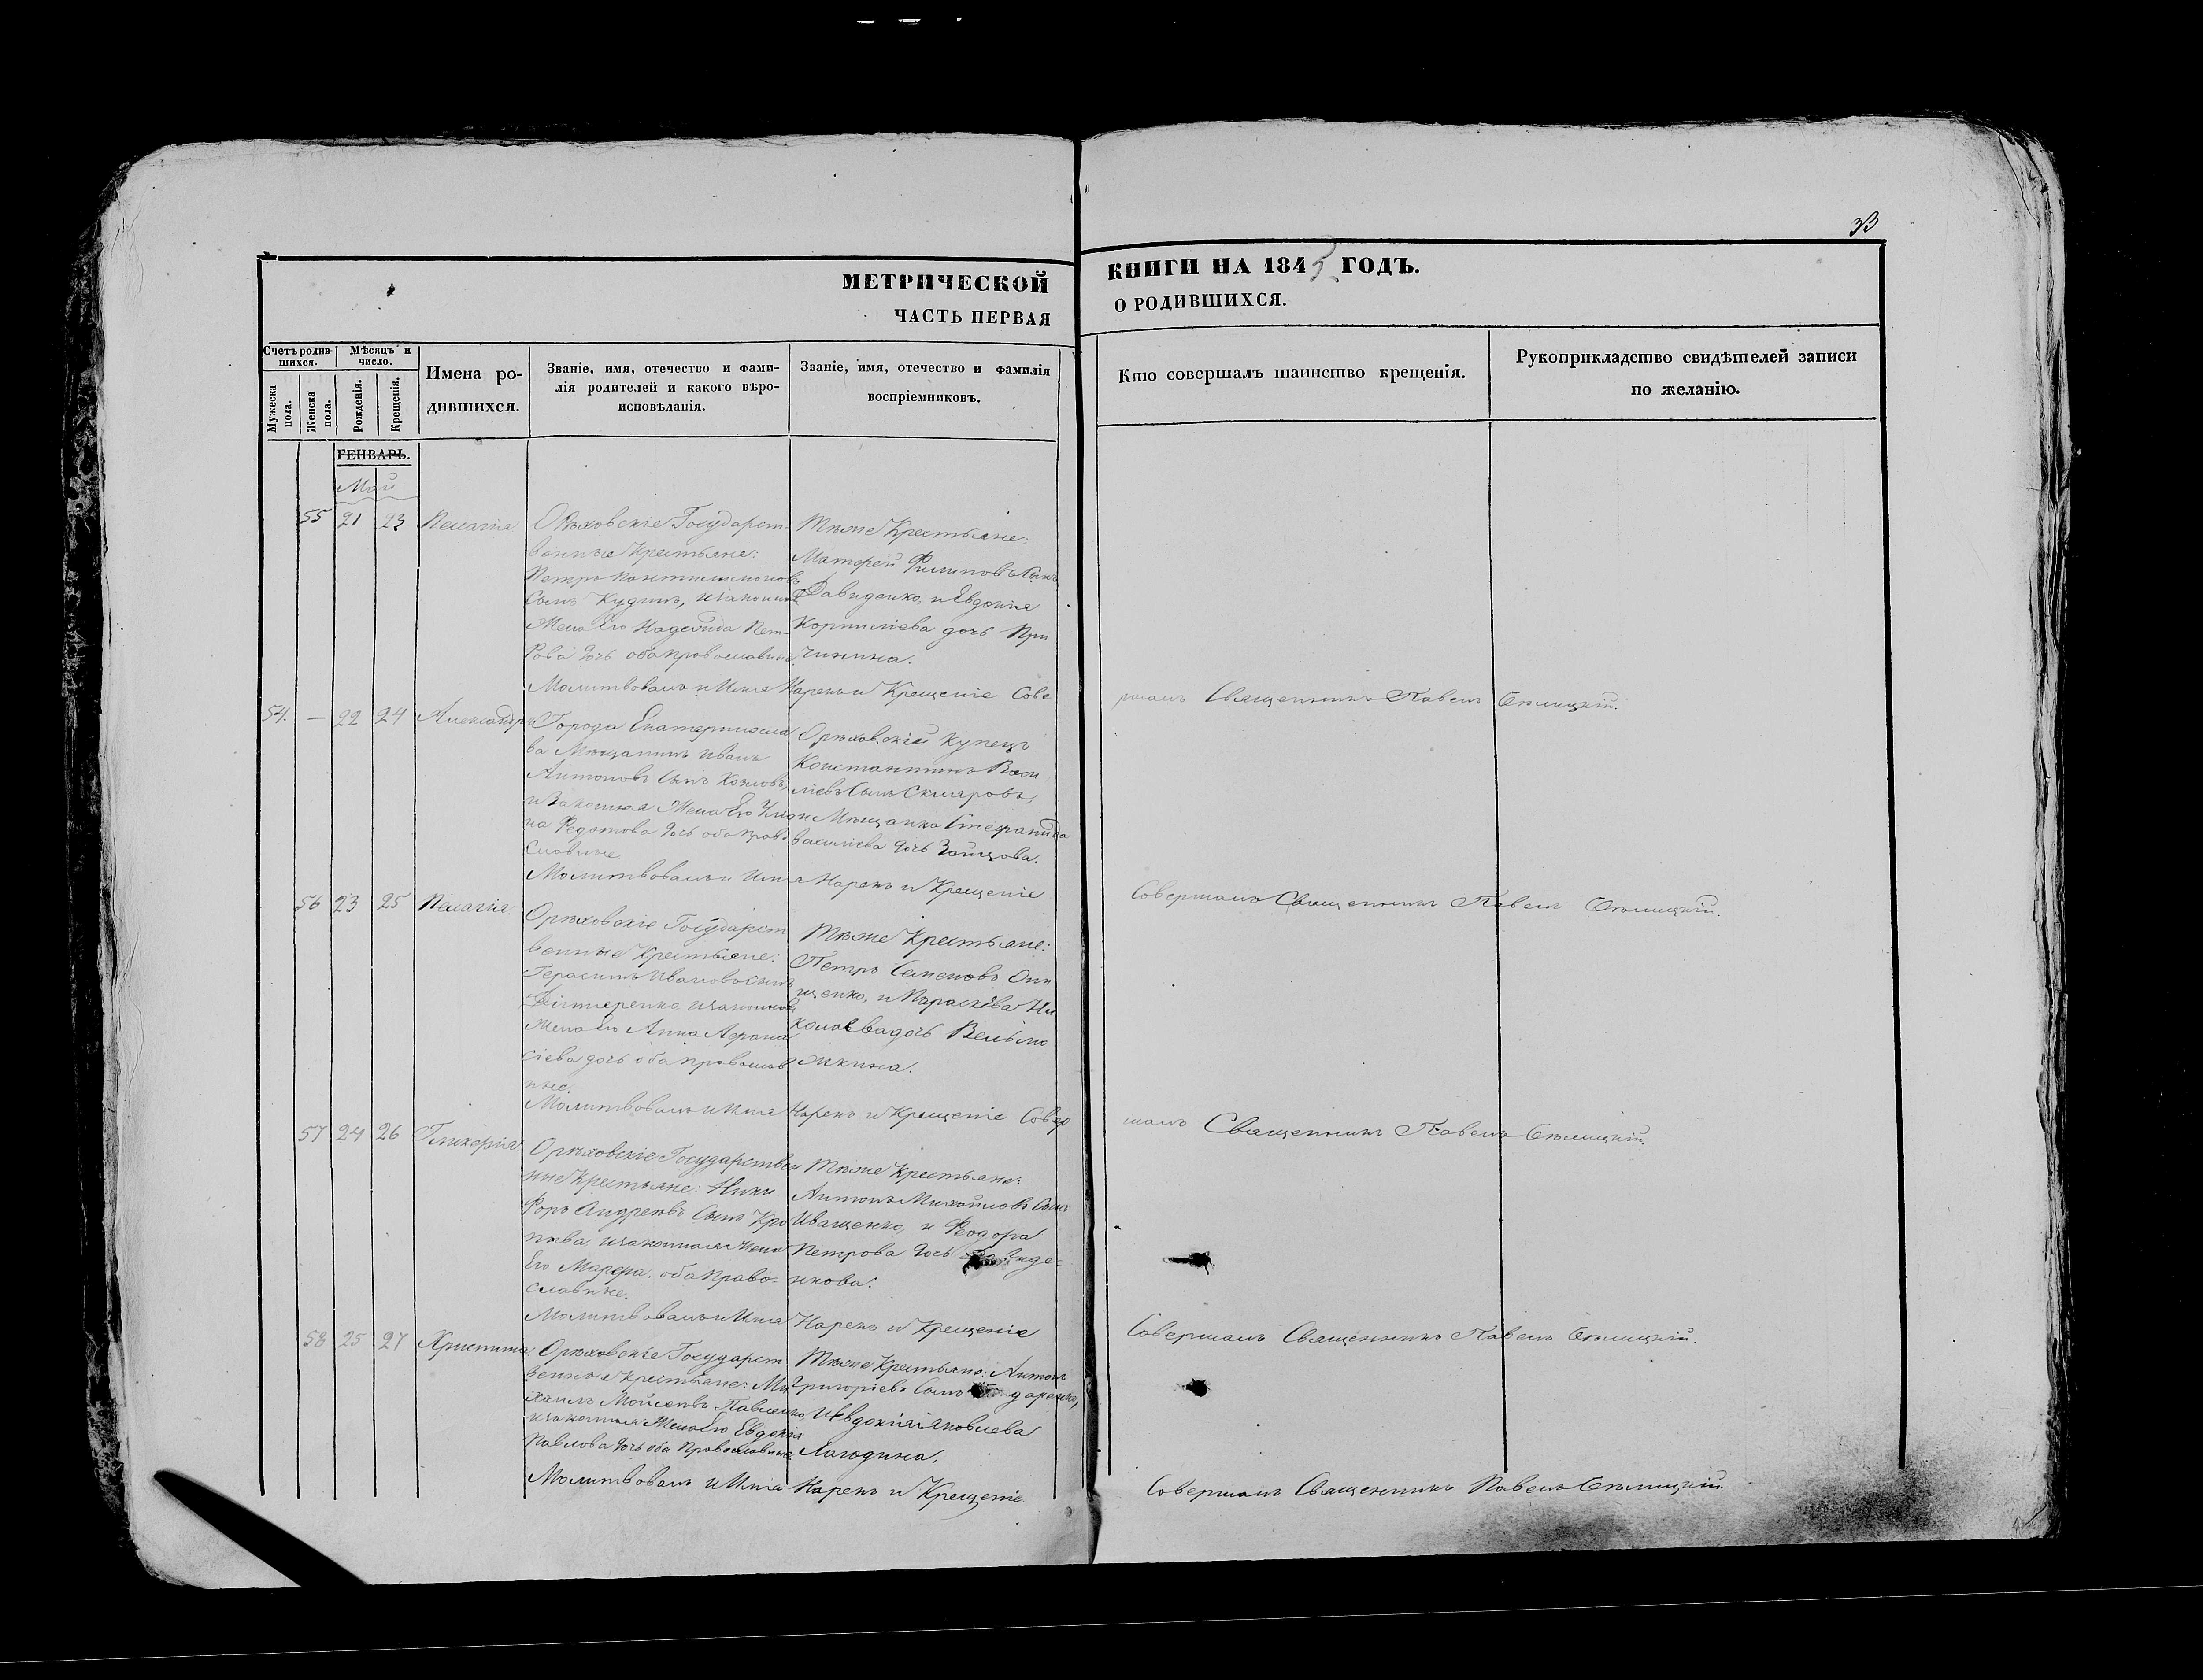 33
МЕТРИЧЕСКОЙ
КНИГИ НА 1845 ГОДЪ.
ЧАСТЬ ПЕРВАЯ
О РОДИВШИХСЯ.
Счетъ родив-
шихся.
Мѣсяцъ и
число.
Мужеска
пола.
Женска
пола.
Рожденія.
Крещенія.
Имена ро-
дившихся.
Званіе, имя, отечество и фами-
лія родителей и какого вѣро-
исповѣданія.
Званіе, имя, отечество и фамилія
воспріемниковъ.
Кто совершалъ таинство крещенія.
Рукоприкладство свидѣтелей записи
по желанію.
ГЕНВАРЬ.
Май
55 21 23 Пелагіа
Орѣховскіе Государст-
венные Крестьяне:
Петръ Пантилимоновъ
Сынъ Кудинъ, изаконная
Жена Его Надежда Пет-
рова дочь оба православные.
Тѣже Крестьяне:
Матфей Филиповъ Сынъ
Давиденко, и Евдокія
Корнилiева дочь При
чинина.
Молитвовалъ и Имя Нарекъ и Крещеніе Сове
ршалъ Священникъ Павелъ Бѣлицкій.
54. — 22 24 Александръ
Города Екатериносла
ва Мѣщанинъ Иванъ
Антоновъ Сынъ Козловъ,
и Законная Жена Его
на Федотова дочь оба право
славные.
Орѣховскій Купецъ
Константинъ Васи
лiевъ Сынъ Скляровъ,
и Мѣщанка Стефанида
Василiева дочь Зайцова.
Молитвовалъ и Имя Нарекъ и Крещеніе
Совершалъ Священникъ Павелъ Бѣлицкій.
56 23 25 Пелагіа
Орѣховскіе Государст
венные Крестьяне:
Герасимъ Ивановъ Сынъ
изаконная
Жена Его Анна Афана
сіева дочь оба православ
ные.
Тѣже Крестьяне:
Петръ Семеновъ Они
щенко, и Параскева Ни
колаева дочь Вельмо
жкина.
Молитвовалъ и Имя Нарекъ и Крещеніе Совер
шалъ Священникъ Павелъ Бѣлицкій.
57 24 26 Гликерія
Орѣховскіе Государствен
ные Крестьяне: Ники
форъ Андреевъ Сынъ Кро
пива изаконная Жена
Его Марфа. оба Право-
славные.
Тѣже Крестьяне:
Антонъ Михайловъ Сынъ
Иващенко, и Феодора
Петрова дочь
нкова.
Молитвовалъ и Имя Нарекъ и Крещеніе
Совершалъ Священникъ Павелъ Бѣлицкій.
58 25 27 Христина
Орѣховскіе Государст
венные Крестьяне: Ми
хаилъ Мойсеевъ Павленко,
изаконная Жена Его Евдокія
Павлова дочь оба Православные.
Тѣже Крестьяне: Антонъ
Григоріевъ Сынъ
и Евдокія Яковлева
Лагодина.
Молитвовалъ и Имя Нарекъ и Крещеніе
Совершалъ Священникъ Павелъ Бѣлицкій.